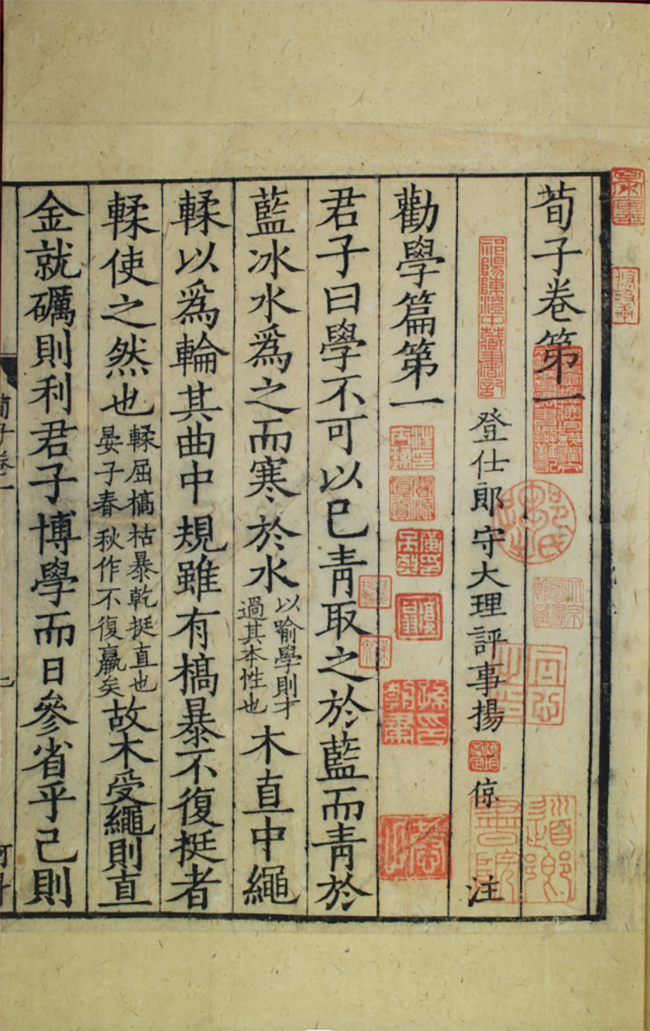 荀子卷第一
祁陽陳澄中藏書記
登仕郎守大理評事揚 倞 注
勸學篇第一
君子曰學不可以已青取之於藍而青於
藍冰水爲之而寒於水以喻學則才過其本性也木直中繩
輮以爲輪其曲中規雖有槁暴不復挺者
輮使之然也輮屈槁枯暴乾挺直也晏子春秋作不復贏矣故木受繩則直
金就礪則利君子博學而日參省乎己則